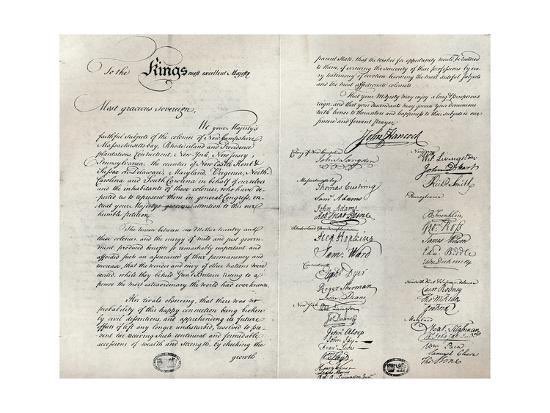 To the Kings most excellent Majesty
Most gracious sovereign,
We your Majesty's
faithful subjects of the colonies of New Hampshire,
Massachusetts bay, Rhode island and Providence
plantations, Connecticut, New-York, New Jersey,
Pennsylvania, the counties of New Castle Kent &
Sussex on Delaware, Maryland, Virginia, North
Carolina and South Carolina in behalf of ourselves
and the inhabitants of these colonies, who have de-
puted us to represent them in general Congress, en-
treat your Majesty's gracious attention to this our
humble petition.
The union between our Mother Country and
these colonies, and the energy of mild and just govern-
ment produced benefits so remarkably important and
afforded such an assurance of their permanency and
increase, that the wonder and envy of other nations were
excited, while they beheld Great Britain rising to a
power the most extraordinary the world had ever known.
Her rivals observing, that there was no
probability of this happy connection being broken
by civil dissentions, and apprehending its future
effects if left any longer undisturbed, resolved to pre-
vent her receiving such continual and formidable
accessions of wealth and strength, by checking the
growth
to them of evincing the sincerity of their professions by eve-
ry testimony of devotion becoming the most dutiful subjects
and the most affectionate colonists
That your Majesty may enjoy a long & prosperous
reign, and that your descendants may govern your dominions
with honor to themselves and happiness to their subjects is our
sincere and fervent prayer.
John Hancock
John Langdon
Massachusetts bay
Thomas Cushing
Saml Adams
John Adams
Robt Treat Paine
Step Hopkins
Sam: Ward
Elipht Dyer
Roger Sherman
Silas Deane
New York
Jas Duane
John Alsop
John Jay
Wm Floyd
Wil Livingston
John D Hart
Richd Smith
Pennsylvania
B Franklin
Geo. Ross
James Wilson
Edwd Biddle
Cæsar Rodney
Tho M:Kean
Maryland
Wm Paca
Samuel Chase
Tho Stone